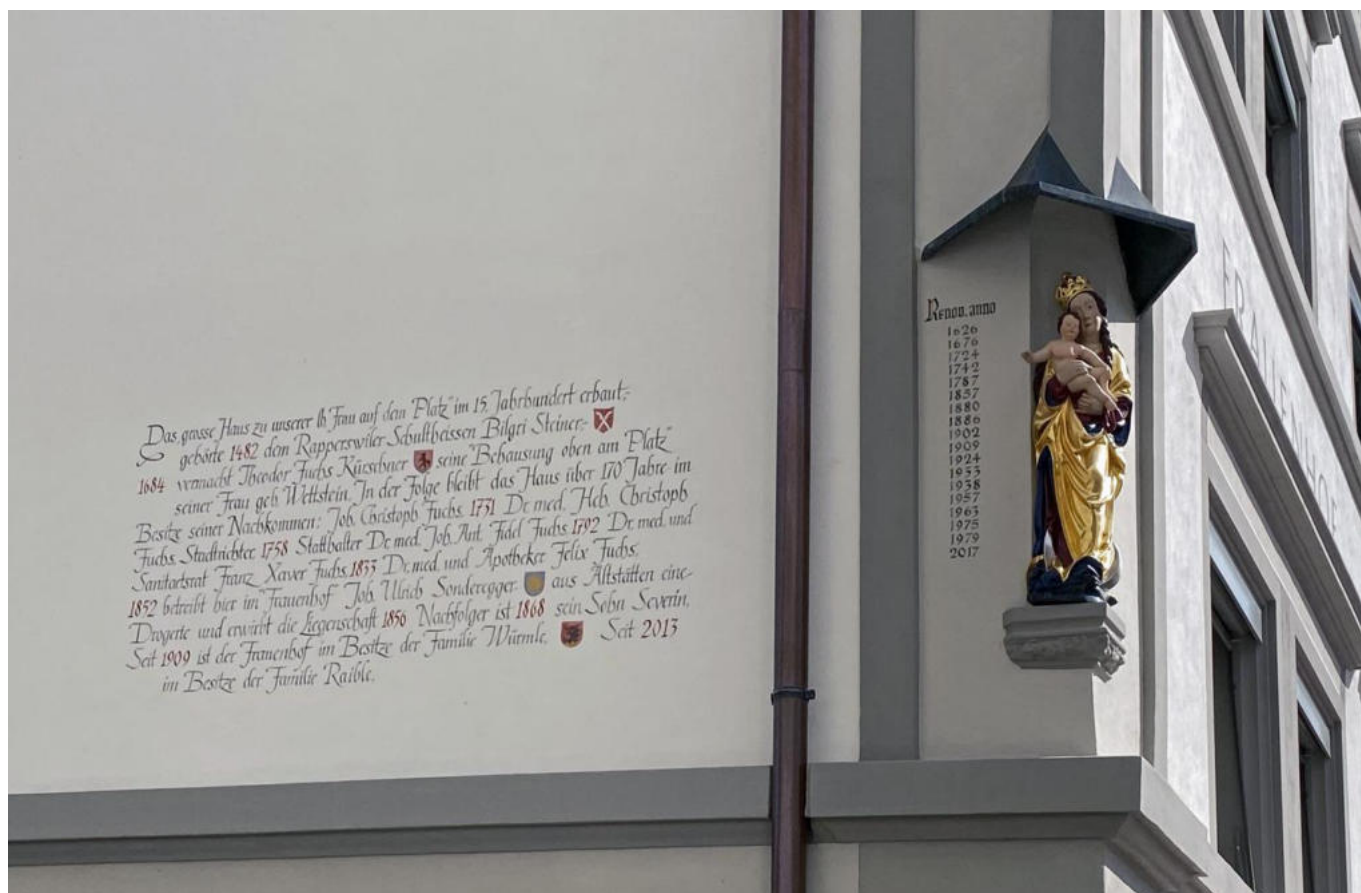 Das grosse Haus zu unserer lb. Frau auf dem "Platz" im 15. Jahrhundert erbaut,-
gehörte 1482 dem Rapperswiler Schultheissen Bilgri Steiner,-
1684 vermacht Theodor Fuchs Kürschner seine "Behausung oben am Platz"
seiner Frau geb. Wettstein. In der Folge bleibt das Haus über 170 Jahre im
Besitze seiner Nachkommen: Joh. Christoph Fuchs. 1731 Dr. med. Heh. Christoph
Fuchs, Stadtrichter. 1758 Statthalter Dr. med. Joh. Ant. Fidel Fuchs. 1792 Dr. med. und
Sanitaetsrat Franz Xaver Fuchs. 1833 Dr. med. und Apotheker Felix Fuchs.
1852 betreibt hier im "Frauenhof" Joh. Ulrich Sonderegger aus Altstätten eine
Drogerie und erwirbt die Liegenschaft 1856 Nachfolger ist 1868 sein Sohn Severin.
Seit 1909 ist der Frauenhof im Besitze der Familie Würmle. Seit 2013
im Besitze der Familie Raible.
Renov. anno
1626
1676
1724
1742
1787
1857
1880
1886
1902
1909
1924
1933
1938
1957
1963
1975
1979
2017